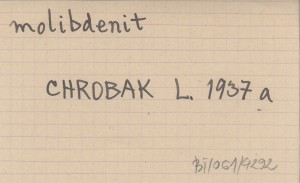 molibdenit
CHROBAK L. 1937 a
BI/OG1/4292